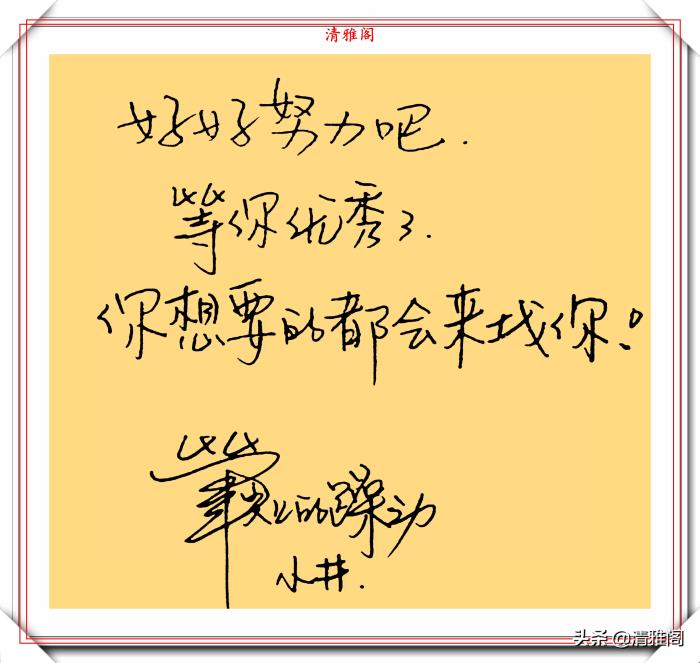 清雅阁
好好努力吧.
等你优秀了.
你想要的都会来找你!
的躁动
小井.
头条 @清雅阁